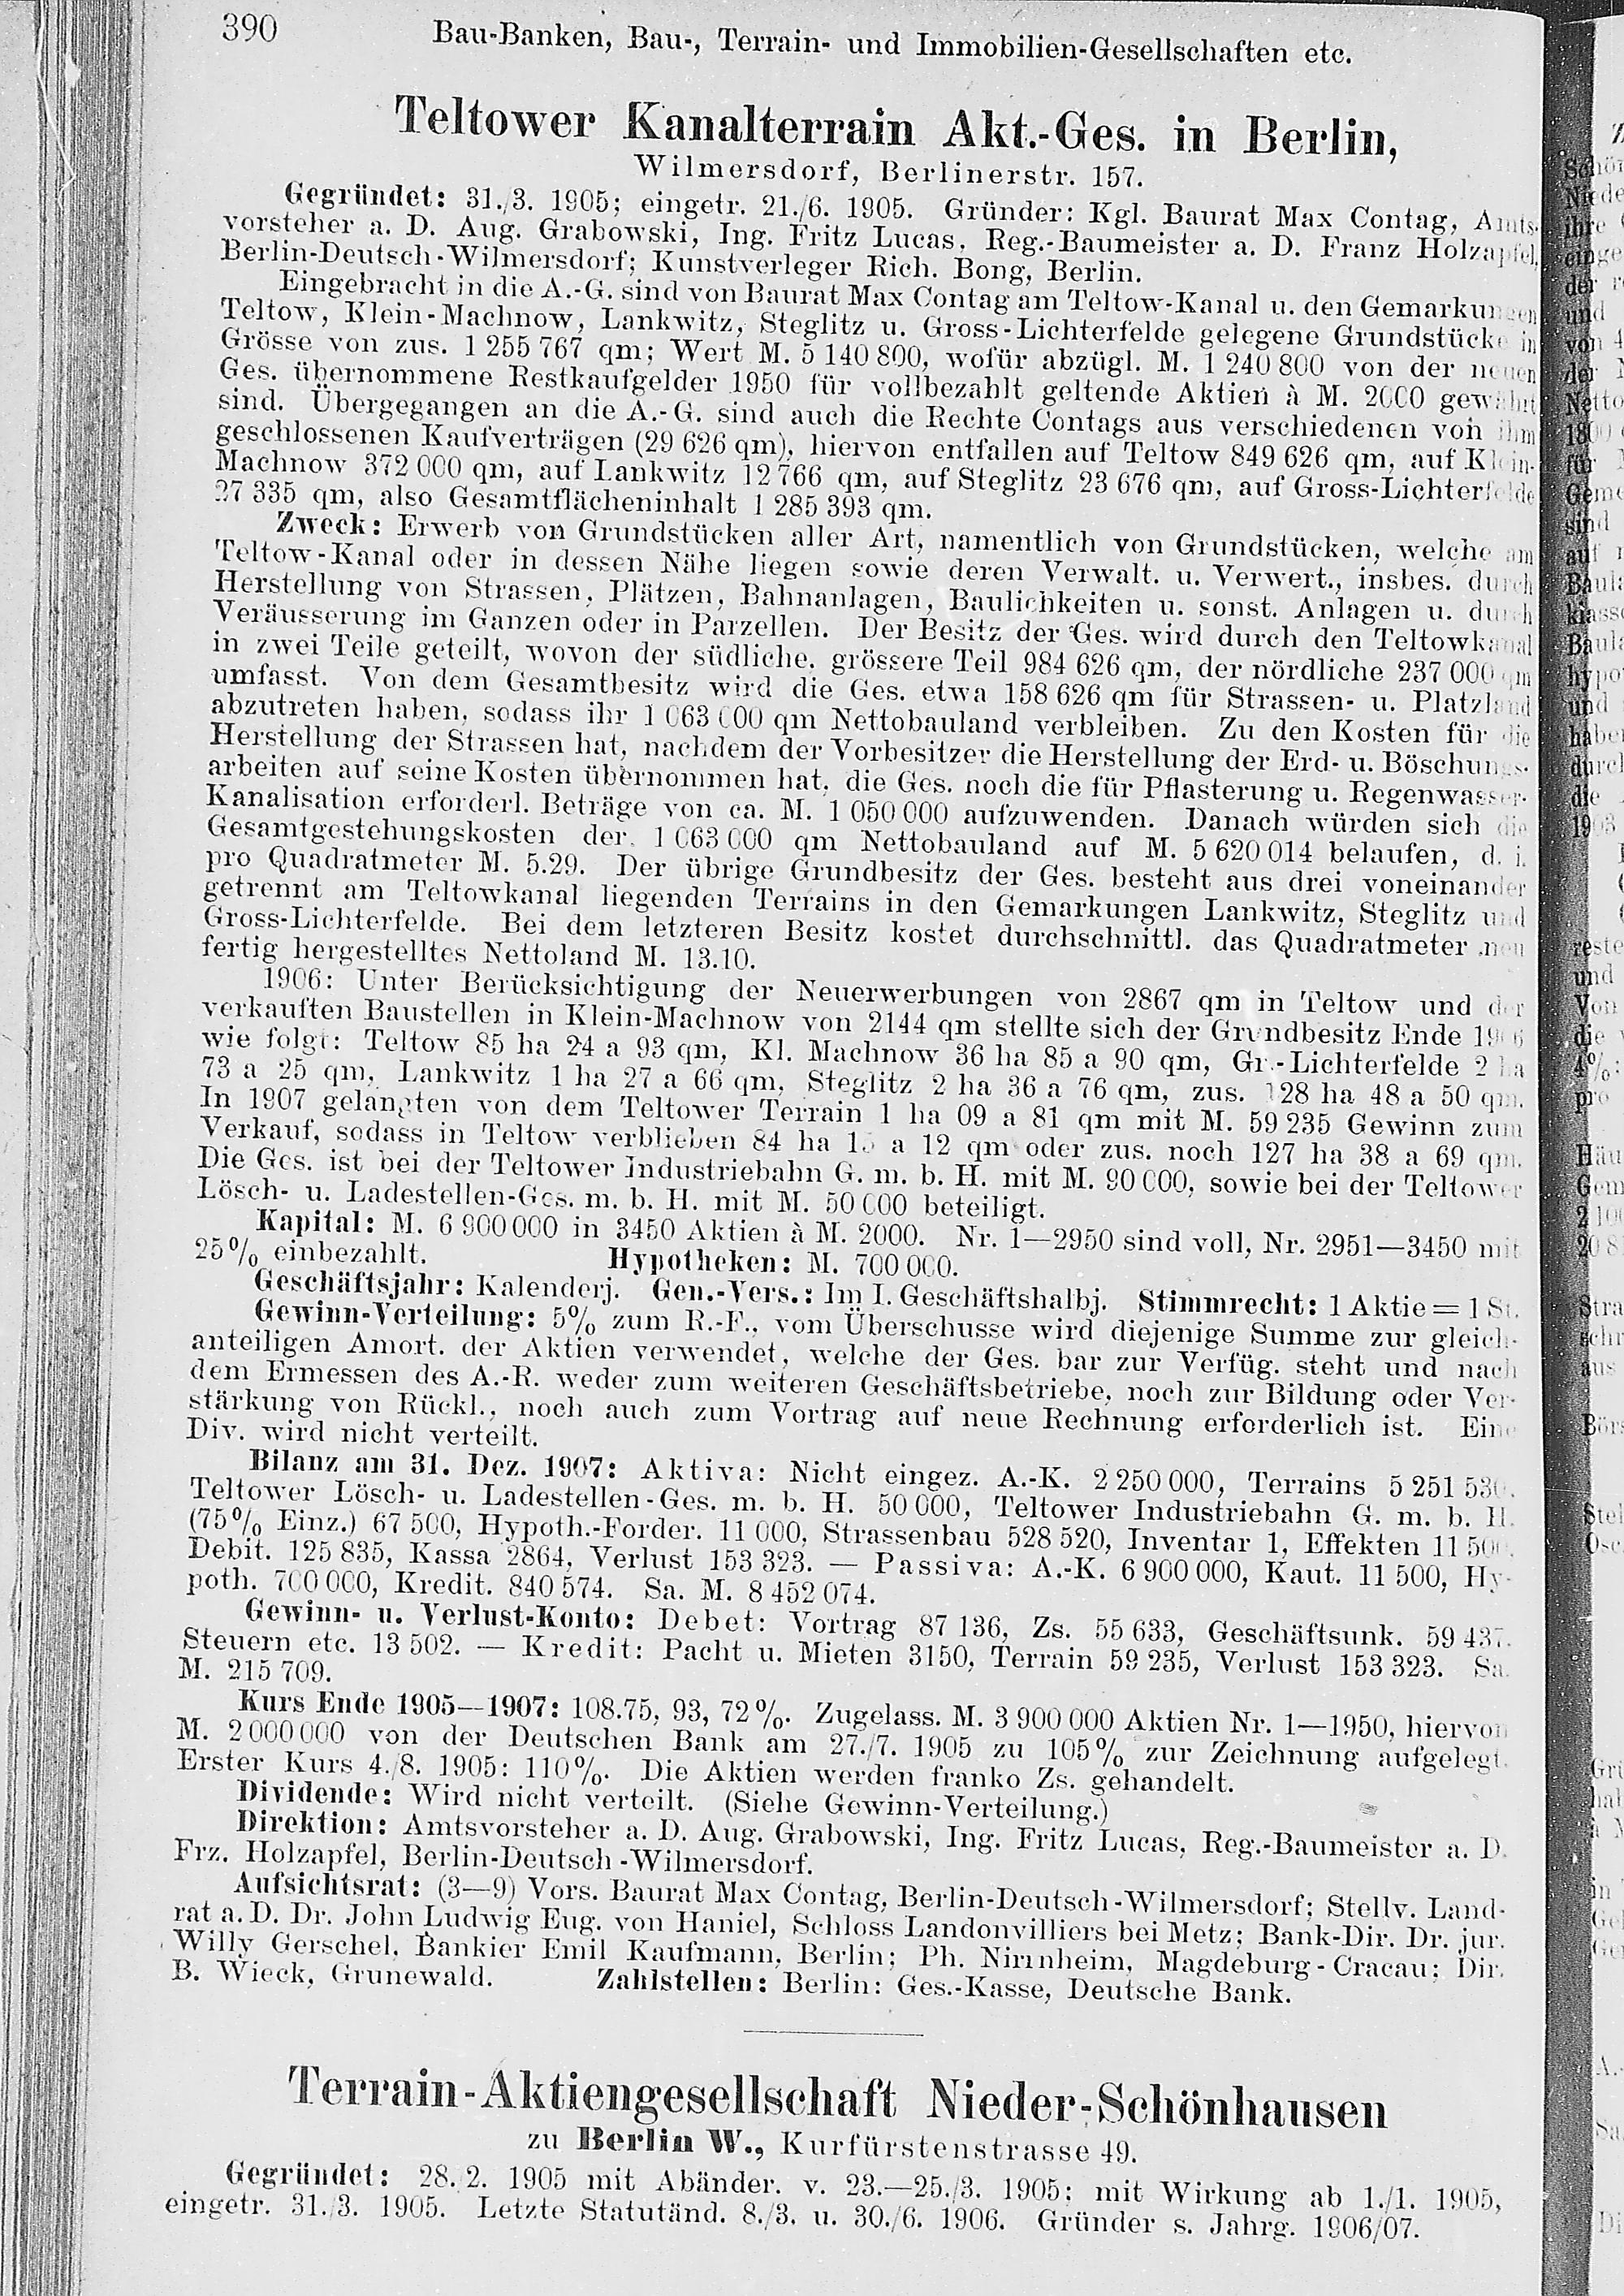 390 Bau-Banken, Bau-, Terrain- und Immobilien-Gesellschaften etc.
Teltower Kanalterrain Akt.-Ges. in Berlin,
Wilmersdorf, Berlinerstr. 157.
Gegründet: 31./3. 1905; eingetr. 21./6. 1905. Gründer: Kgl. Baurat Max Contag, Amts-
vorsteher a. D. Aug. Grabowski, Ing. Fritz Lucas, Reg.-Baumeister a. D. Franz Holzapfel,
Berlin-Deutsch-Wilmersdorf; Kunstverleger Rich. Bong, Berlin.
Eingebracht in die A.-G. sind von Baurat Max Contag am Teltow-Kanal u. den Gemarkungen
Teltow, Klein-Machnow, Lankwitz, Steglitz u. Gross-Lichterfelde gelegene Grundstücke in
Grösse von zus. 1 255 767 qm; Wert M. 5 140 800, wofür abzügl. M. 1 240 800 von der neuen
Ges. übernommene Restkaufgelder 1950 für vollbezahlt geltende Aktien à M. 2000 gewährt
sind. Übergegangen an die A.-G. sind auch die Rechte Contags aus verschiedenen von ihm
geschlossenen Kaufverträgen (29 626 qm), hiervon entfallen auf Teltow 849 626 qm, auf Klein-
Machnow 372 000 qm, auf Lankwitz 12 766 qm, auf Steglitz 23 676 qm, auf Gross-Lichterfelde
27 335 qm, also Gesamtflächeninhalt 1 285 393 qm.
Zweck: Erwerb von Grundstücken aller Art, namentlich von Grundstücken, welche am
Teltow-Kanal oder in dessen Nähe liegen sowie deren Verwalt. u. Verwert., insbes. durch
Herstellung von Strassen, Plätzen, Bahnanlagen, Baulichkeiten u. sonst. Anlagen u. durch
Veräusserung im Ganzen oder in Parzellen. Der Besitz der Ges. wird durch den Teltowkanal
in zwei Teile geteilt, wovon der südliche, grössere Teil 984 626 qm, der nördliche 237 000 qm
umfasst. Von dem Gesamtbesitz wird die Ges. etwa 158 626 qm für Strassen- u. Platzland
abzutreten haben, sodass ihr 1 063 000 qm Nettobauland verbleiben. Zu den Kosten für die
Herstellung der Strassen hat, nachdem der Vorbesitzer die Herstellung der Erd- u. Böschungs-
arbeiten auf seine Kosten übernommen hat, die Ges. noch die für Pflasterung u. Regenwasser-
Kanalisation erforderl. Beträge von ca. M. 1 050 000 aufzuwenden. Danach würden sich die
Gesamtgestehungskosten der 1 063 000 qm Nettobauland auf M. 5 620 014 belaufen, d. i.
pro Quadratmeter M. 5.29. Der übrige Grundbesitz der Ges. besteht aus drei voneinander
getrennt am Teltowkanal liegenden Terrains in den Gemarkungen Lankwitz, Steglitz und
Gross-Lichterfelde. Bei dem letzteren Besitz kostet durchschnittl. das Quadratmeter neu
fertig hergestelltes Nettoland M. 13.10.
1906: Unter Berücksichtigung der Neuerwerbungen von 2867 qm in Teltow und der
verkauften Baustellen in Klein-Machnow von 2144 qm stellte sich der Grundbesitz Ende 1906
wie folgt: Teltow 85 ha 24 a 93 qm, Kl. Machnow 36 ha 85 a 90 qm, Gr.-Lichterfelde 2 ha
73 a 25 qm, Lankwitz 1 ha 27 a 66 qm, Steglitz 2 ha 36 a 76 qm, zus. 128 ha 48 a 50 qm.
In 1907 gelangten von dem Teltower Terrain 1 ha 09 a 81 qm mit M. 59 235 Gewinn zum
Verkauf, sodass in Teltow verblieben 84 ha a 12 qm oder zus. noch 127 ha 38 a 69 qm.
Die Ges. ist bei der Teltower Industriebahn G. m. b. H. mit M. 90 000, sowie bei der Teltower
Lösch- u. Ladestellen-Ges. m. b. H. mit M. 50 000 beteiligt.
Kapital: M. 6 900 000 in 3450 Aktien à M. 2000. Nr. 1—2950 sind voll, Nr. 2951—3450 mit
25% einbezahlt. Hypotheken: M. 700 000.
Geschäftsjahr: Kalenderj. Gen.-Vers.: Im I. Geschäftshalbj. Stimmrecht: 1 Aktie = 1 St.
Gewinn-Verteilung: 5% zum R.-F., vom Überschusse wird diejenige Summe zur gleich-
anteiligen Amort. der Aktien verwendet, welche der Ges. bar zur Verfüg. steht und nach
dem Ermessen des A.-R. weder zum weiteren Geschäftsbetriebe, noch zur Bildung oder Ver-
stärkung von Rückl., noch auch zum Vortrag auf neue Rechnung erforderlich ist. Eine
Div. wird nicht verteilt.
Bilanz am 31. Dez. 1907: Aktiva: Nicht eingez. A.-K. 2 250 000, Terrains 5 251 530,
Teltower Lösch- u. Ladestellen-Ges. m. b. H. 50 000, Teltower Industriebahn G. m. b. H.
(75% Einz.) 67 500, Hypoth.-Forder. 11 000, Strassenbau 528 520, Inventar 1, Effekten 11 500,
Debit. 125 835, Kassa 2864, Verlust 153 323. — Passiva: A.-K. 6 900 000, Kaut. 11 500, Hy-
poth. 700 000, Kredit. 840 574. Sa. M. 8 452 074.
Gewinn- u. Verlust-Konto: Debet: Vortrag 87 136, Zs. 55 633, Geschäftsunk. 59 437,
Steuern etc. 13 502. — Kredit: Pacht u. Mieten 3150, Terrain 59 235, Verlust 153 323. Sa.
M. 215 709.
Kurs Ende 1905—1907: 108.75, 93, 72%. Zugelass. M. 3 900 000 Aktien Nr. 1—1950, hiervon
M. 2 000 000 von der Deutschen Bank am 27./7. 1905 zu 105% zur Zeichnung aufgelegt.
Erster Kurs 4./8. 1905: 110%. Die Aktien werden franko Zs. gehandelt.
Dividende: Wird nicht verteilt. (Siehe Gewinn-Verteilung.)
Direktion: Amtsvorsteher a. D. Aug. Grabowski, Ing. Fritz Lucas, Reg.-Baumeister a. D.
Frz. Holzapfel, Berlin-Deutsch-Wilmersdorf.
Aufsichtsrat: (3—9) Vors. Baurat Max Contag, Berlin-Deutsch-Wilmersdorf; Stellv. Land-
rat a. D. Dr. John Ludwig Eug. von Haniel, Schloss Landonvilliers bei Metz; Bank-Dir. Dr. jur.
Willy Gerschel, Bankier Emil Kaufmann, Berlin; Ph. Nirrnheim, Magdeburg-Cracau; Dir.
B. Wieck, Grunewald. Zahlstellen: Berlin: Ges.-Kasse, Deutsche Bank.
Terrain-Aktiengesellschaft Nieder-Schönhausen
zu Berlin W., Kurfürstenstrasse 49.
Gegründet: 28./2. 1905 mit Abänder. v. 23.—25./3. 1905; mit Wirkung ab 1./1. 1905,
eingetr. 31./3. 1905. Letzte Statutänd. 8./3. u. 30./6. 1906. Gründer s. Jahrg. 1906/07.